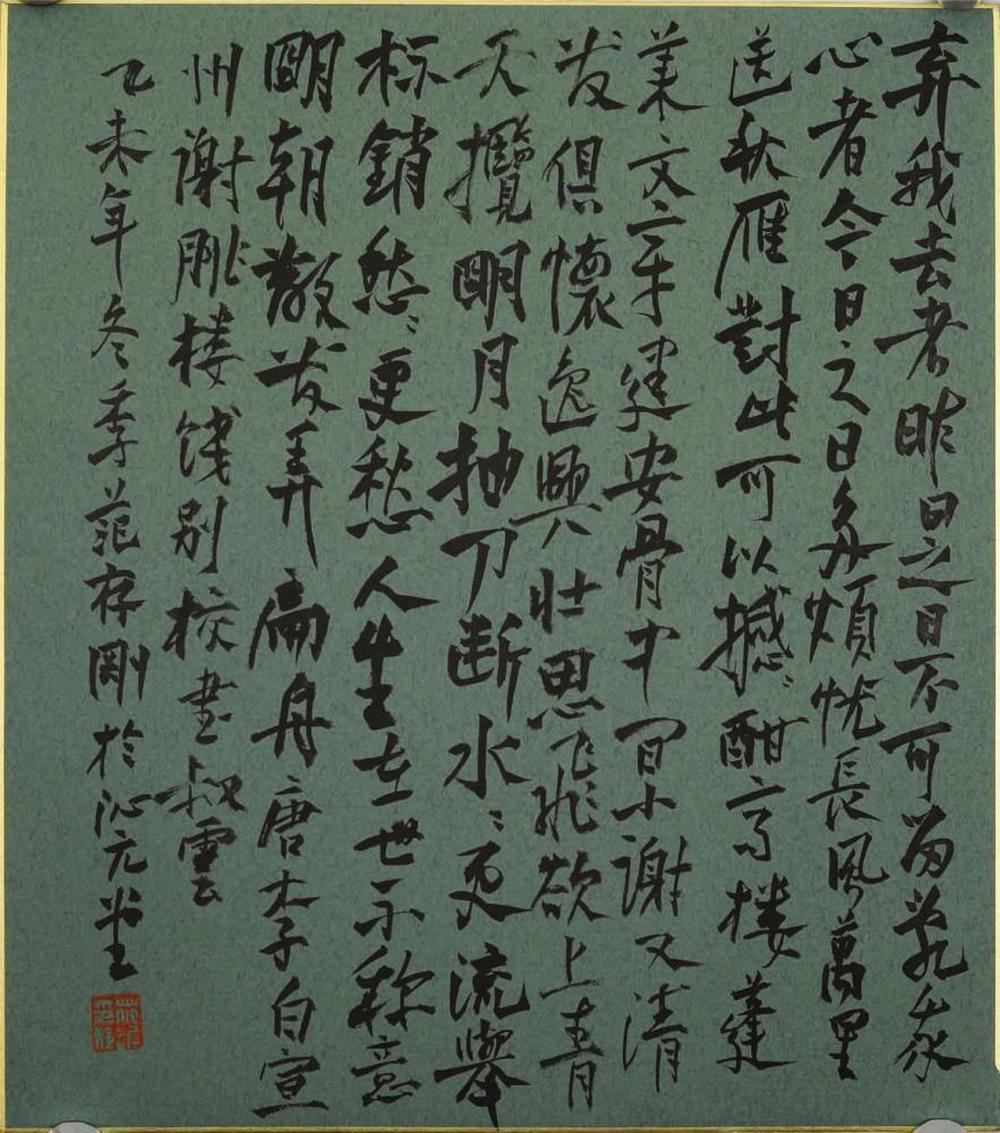 弃我去者昨日之日不可留乱我
心者今日之日多烦忧長風萬里
送秋雁對此可以撼〻酣高楼蓬
莱文字建安骨中间小谢又清
发俱懷逸興壮思飞欲上青
天攬明月抽刀断水〻更流舉
杯銷愁〻更愁人生在世不称意
明朝散发弄扁舟唐李白宣
州谢朓楼饯别校書叔雲
乙未年冬季范存剛於沁元堂